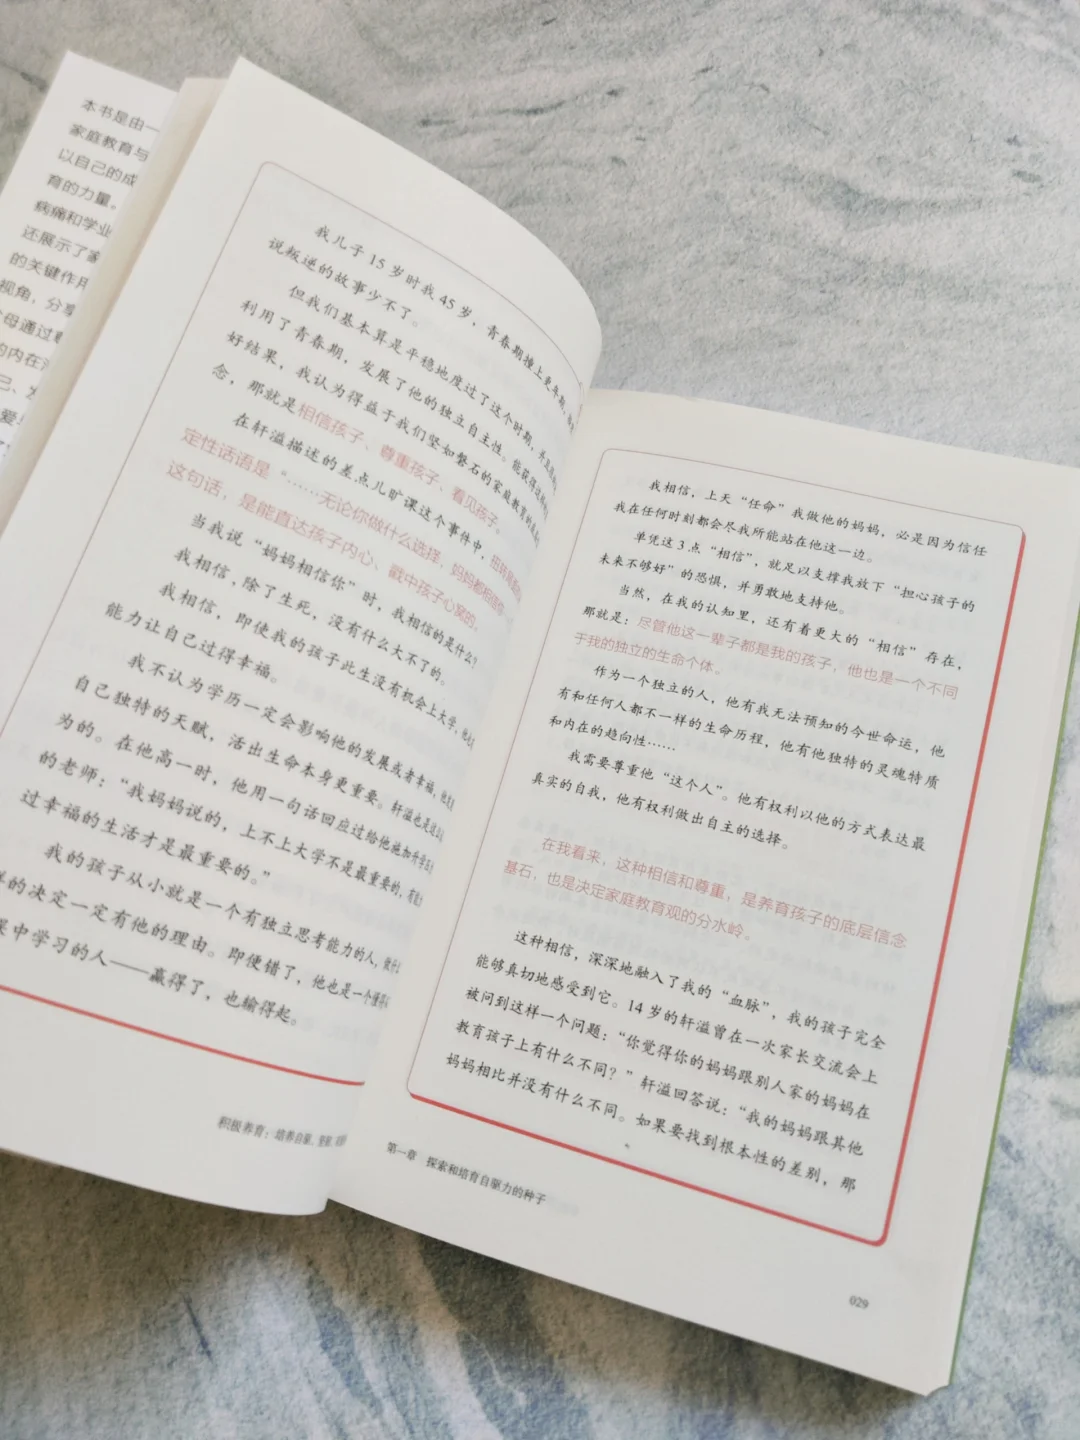 本书是由一
家庭教育与
以自己的成
育的力量。
病痛和学业
还展示了家
的关键作用
视角，分享
母通过
的内在
己、发
爱
我儿子15岁时我45岁，青春期撞上更年期，
说叛逆的故事少不了。
但我们基本算是平稳地度过了这个时期，并且
利用了青春期，发展了他的独立自主性。能获得这样的
好结果，我认为得益于我们坚如磐石的家庭教育的
念，那就是相信孩子、尊重孩子、看见孩子。
在轩溢描述的差点儿旷课这个事件中，
定性话语是“……无论你做什么选择，妈妈都相信你
这句话，是能直达孩子内心、戳中孩子心窝的。
当我说“妈妈相信你”时，我相信的是什么？
我相信，除了生死，没有什么大不了的。
我相信，即使我的孩子此生没有机会上大学，
能力让自己过得幸福。
我不认为学历一定会影响他的发展或者幸福，
自己独特的天赋，活出生命本身更重要。轩溢也是这么
为的。在他高一时，他用一句话回应过给他施加升学压
的老师：“我妈妈说的，上不上大学不是最重要的，有能力
过幸福的生活才是最重要的。”
我的孩子从小就是一个有独立思考能力的人，做什么
样的决定一定有他的理由。即便错了，他也是一个懂得
中学习的人——赢得了，也输得起。
积极养育：培养自驱、
我相信，上天“任命”我做他的妈妈，必是因为信任
我在任何时刻都会尽我所能站在他这一边。
单凭这3点“相信”，就足以支撑我放下“担心孩子的
未来不够好”的恐惧，并勇敢地支持他。
当然，在我的认知里，还有着更大的“相信”存在，
那就是：尽管他这一辈子都是我的孩子，他也是一个不同
于我的独立的生命个体。
作为一个独立的人，他有我无法预知的今世命运，他
有和任何人都不一样的生命历程，他有他独特的灵魂特质
和内在的趋向性……
我需要尊重他“这个人”。他有权利以他的方式表达最
真实的自我，他有权利做出自主的选择。
在我看来，这种相信和尊重，是养育孩子的底层信念
基石，也是决定家庭教育观的分水岭。
这种相信，深深地融入了我的“血脉”，我的孩子完全
能够真切地感受到它。14岁的轩溢曾在一次家长交流会上
被问到这样一个问题：“你觉得你的妈妈跟别人家的妈妈在
教育孩子上有什么不同？”轩溢回答说：“我的妈妈跟其他
妈妈相比并没有什么不同。如果要找到根本性的差别，那
第一章 探索和培育自驱力的种子
029